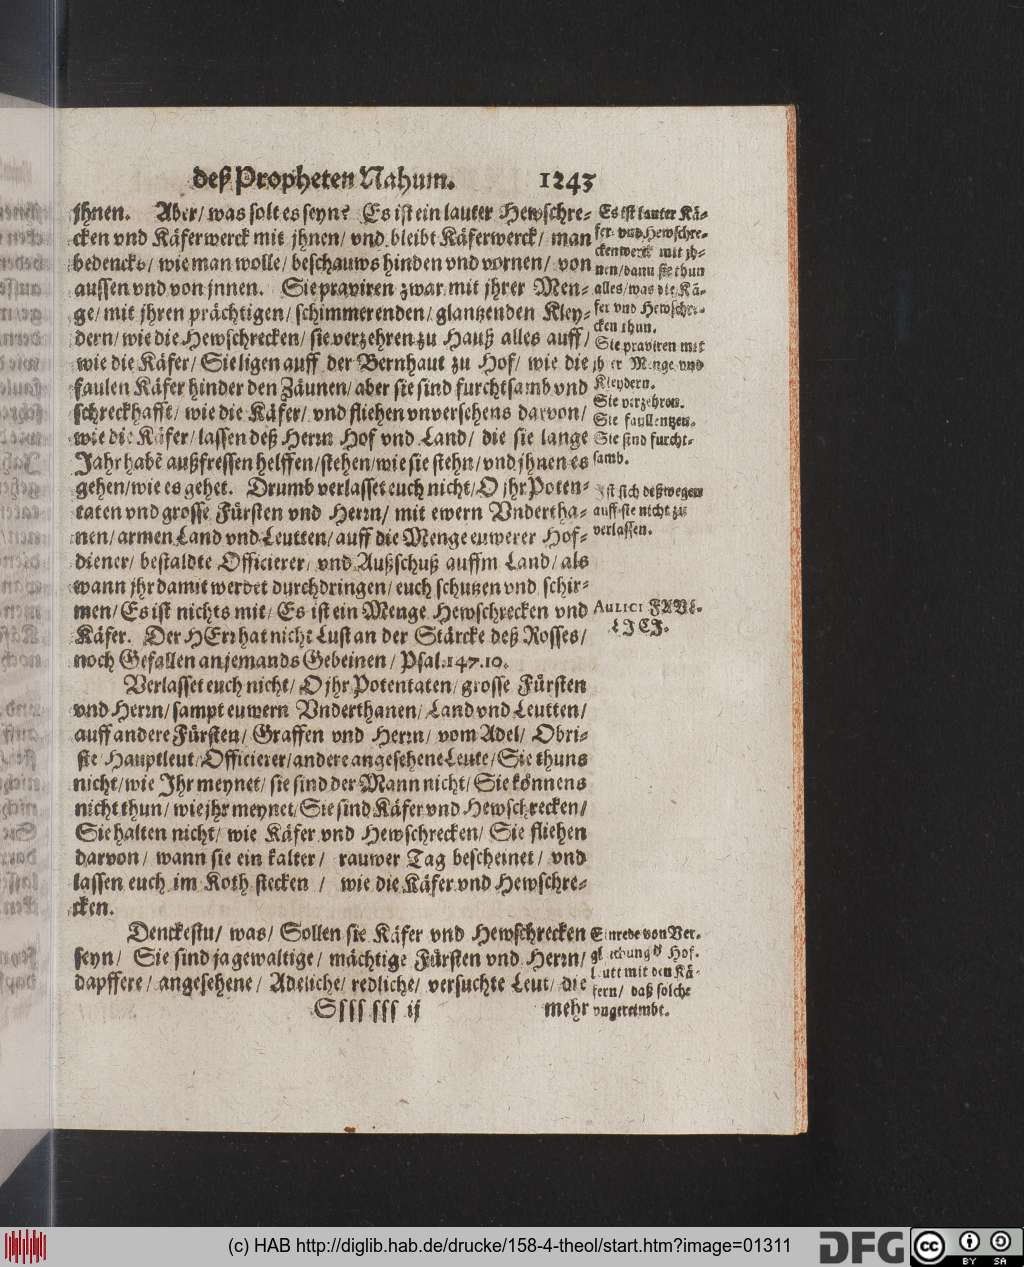 deß Propheten Nahum. 1243
jhnen. Aber/ was solt es seyn? Es ist ein lauter Hewschre-
cken vnd Käferwerck mit jhnen/ vnd bleibt Käferwerck/ man
bedencke/ wie man wolle/ beschauws hinden vnd vornen/ von
aussen vnd von jnnen. Sie praviren zwar mit jhrer Men-
ge/ mit jhren prächtigen/ schimmerenden/ glantzenden Kley-
dern/ wie die Hewschrecken/ sie verzehren zu Hauß alles auff/
wie die Käfer/ Sie ligen auff der Bernhaut zu Hof/ wie die
faulen Käfer hinder den Zäunen/ aber sie sind furchtsamb vnd
schreckhafft/ wie die Käfer/ vnd fliehen vnversehens darvon/
wie die Käfer/ lassen deß Herrn Hof vnd Land/ die sie lange
Jahr habẽ außfressen helffen/ stehen/ wie sie stehn/ vnd jhnen es
gehen/ wie es gehet. Drumb verlasset euch nicht/ O jhr Poten-
taten vnd grosse Fürsten vnd Herrn/ mit ewern Vndertha-
nen/ armen Land vnd Leutten/ auff die Menge euwerer Hof-
diener/ bestaldte Officierer/ vnd Außschuß auffm Land/ als
wann jhr damit werdet durchdringen/ euch schutzen vnd schir-
men/ Es ist nichts mit/ Es ist ein Menge Hewschrecken vnd
Käfer. Der HErr hat nicht Lust an der Stärcke deß Rosses/
noch Gefallen an jemands Gebeinen/ Psal. 147. 10.
Verlasset euch nicht/ O jhr Potentaten/ grosse Fürsten
vnd Herrn/ sampt euwern Vnderthanen/ Land vnd Leutten/
auff andere Fürsten/ Graffen vnd Herrn/ vom Adel/ Obri-
ste Hauptleut/ Officierer/ andere angesehene Leute/ Sie thuns
nicht/ wie Ihr meynet/ sie sind der Mann nicht/ Sie können s
nicht thun/ wie jhr meynet/ Sie sind Käfer vnd Hewschrecken/
Sie halten nicht/ wie Käfer vnd Hewschrecken/ Sie fliehen
darvon/ wann sie ein kalter/ rauwer Tag bescheinet/ vnd
lassen euch im Koth stecken/ wie die Käfer vnd Hewschre-
cken.
Denckestu/ was/ Sollen sie Käfer vnd Hewschrecken
seyn/ Sie sind ja gewaltige/ mächtige Fürsten vnd Herrn/
dapffere/ angesehene/ Adeliche/ redliche/ versuchte Leut/ die
Ssss sss ij mehr
Es ist lauter Kä-
fer vnd Hewschre-
ckenwerck mit jh-
nen/ dann sie thun
alles/ was die Kä-
fer vnd Hewschre-
cken thun.
Sie praviren mit
jhrer Menge vnd
Kleydern.
Sie verzehren.
Sie faullentzen.
Sie sind furcht-
samb.
Ist sich deßwegen
auff sie nicht zu
verlassen.
AULICI FAVE-
LICI.
Einrede von Ver-
gleichung d' Hof-
leutt mit den Kä-
fern/ daß solche
vngereimbt.
(c) HAB http://diglib.hab.de/drucke/158-4-theol/start.htm?image=01311
DFG
cc BY SA